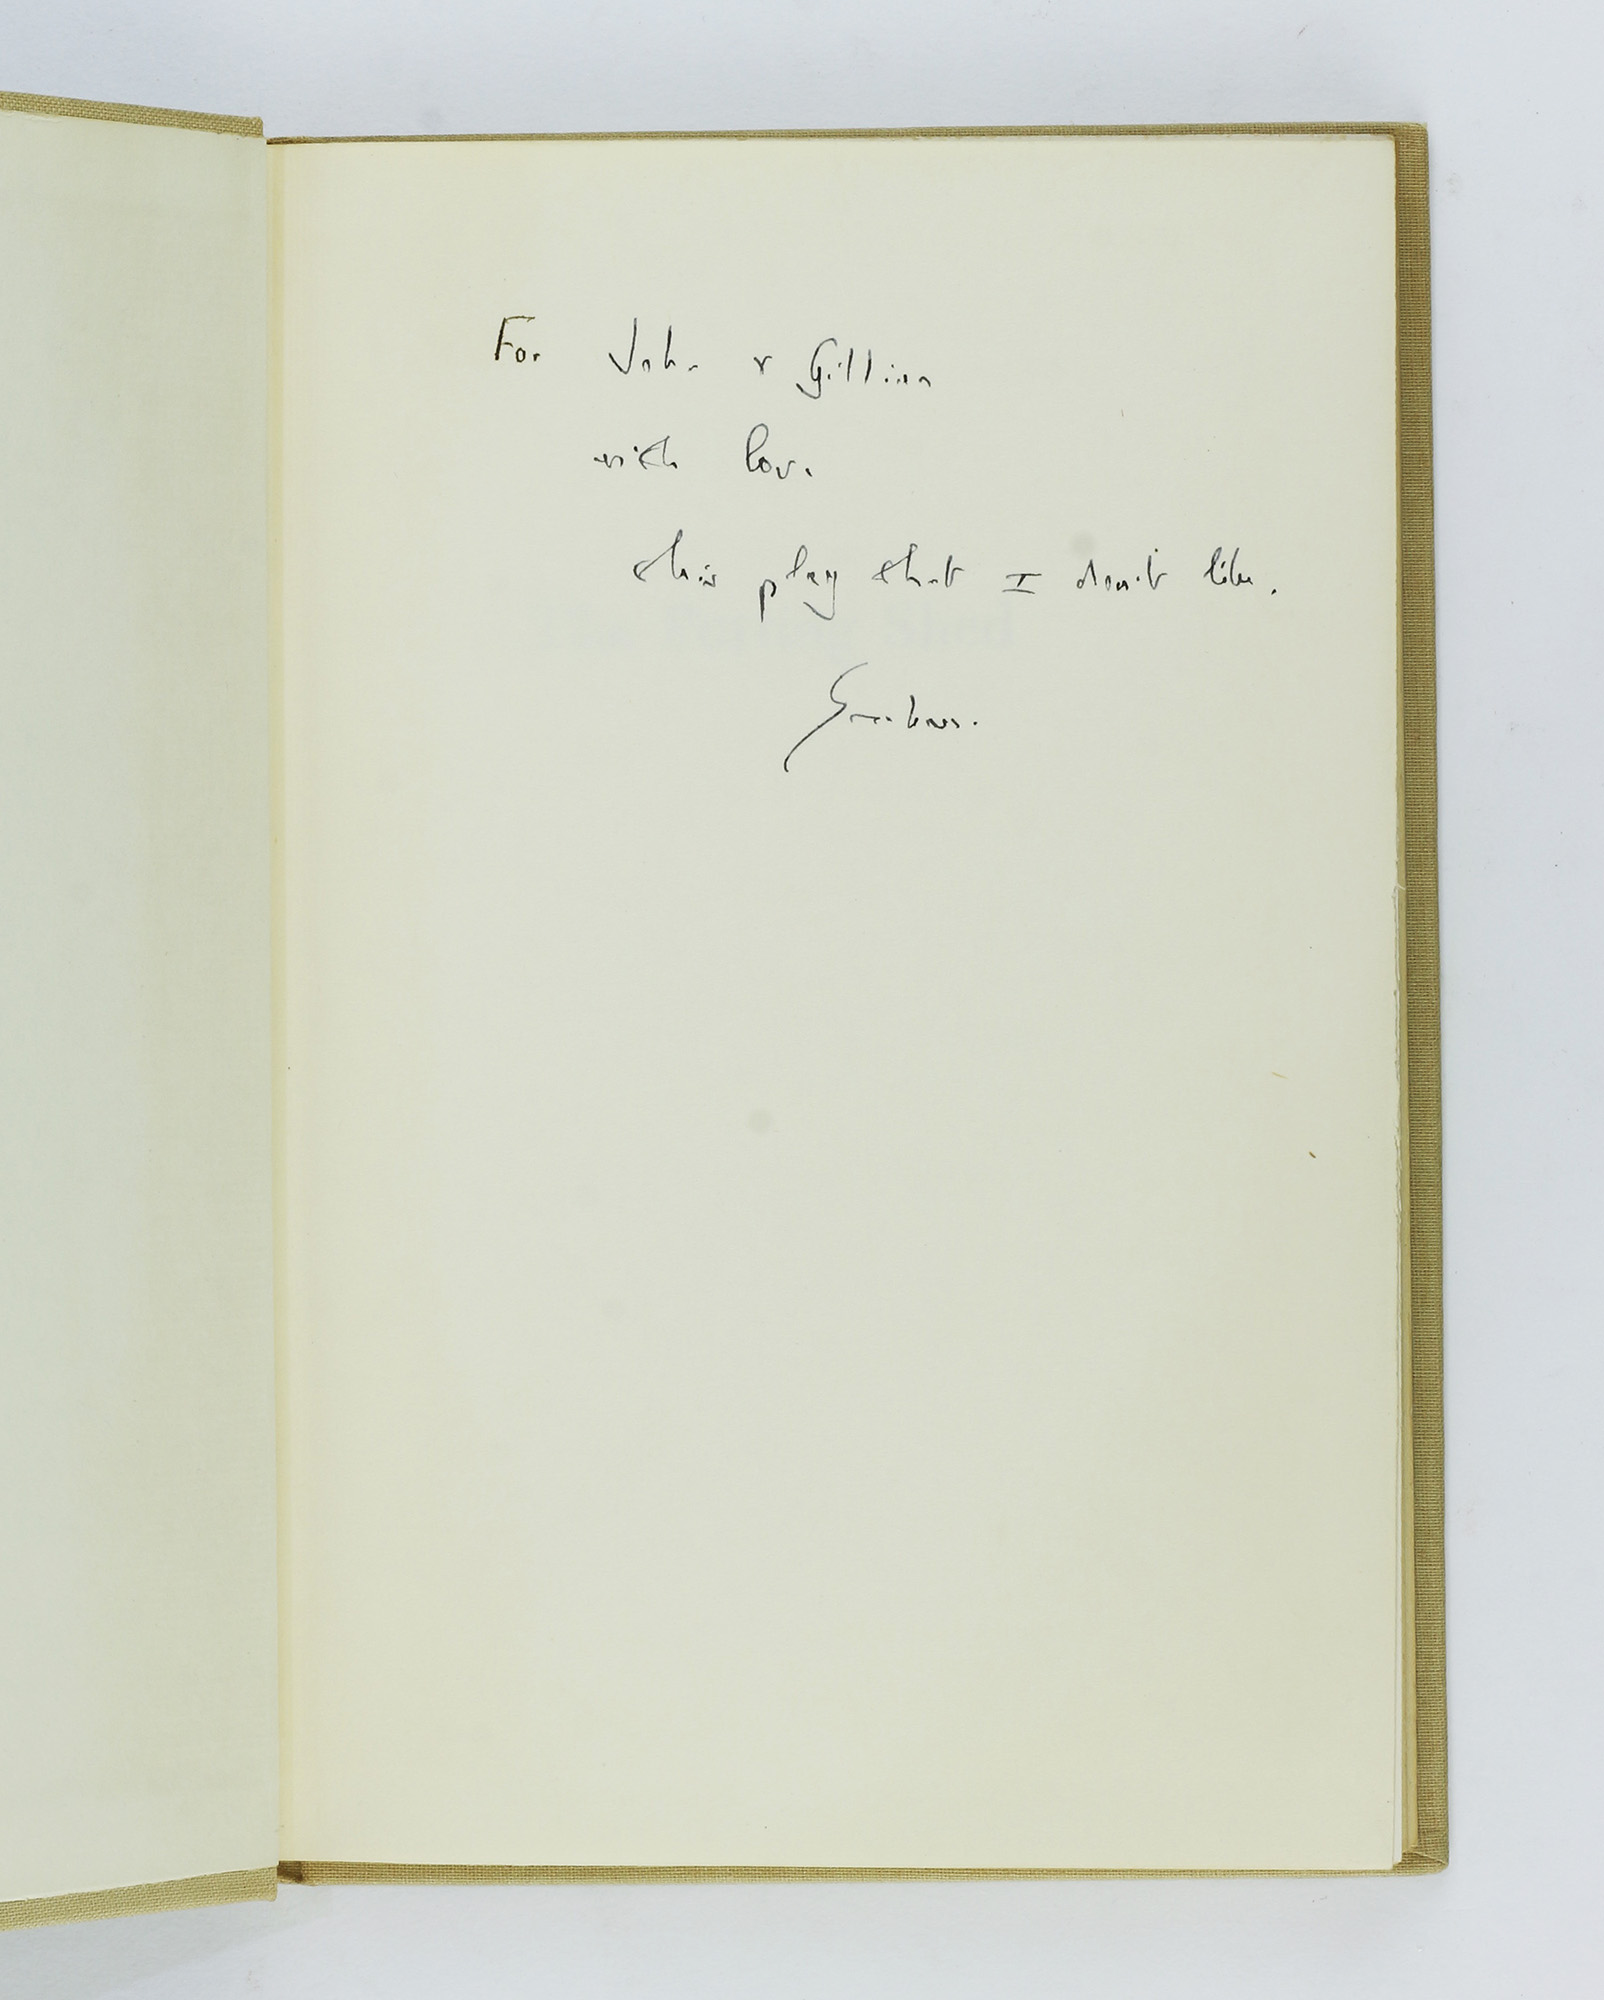 For John & Gillian
with love
this play that I don't like.
Graham.